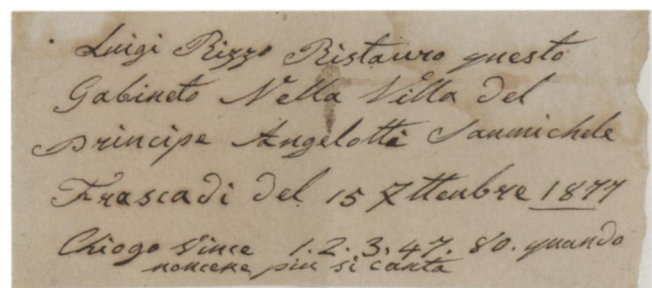 Luigi Rizzo Ristauro questo
Gabineto Nella Villa del
Principe Angelotti Sanmichele
Frascadi del 15 7ttenbre 1877
Chiogo Vince 1.2.3.47.80. quando
noncene piu si canta